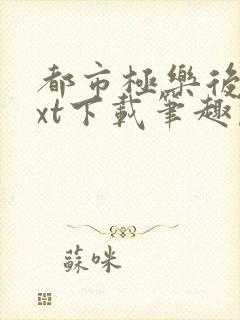 都市極樂後
xt下載筆趣
蘇咪